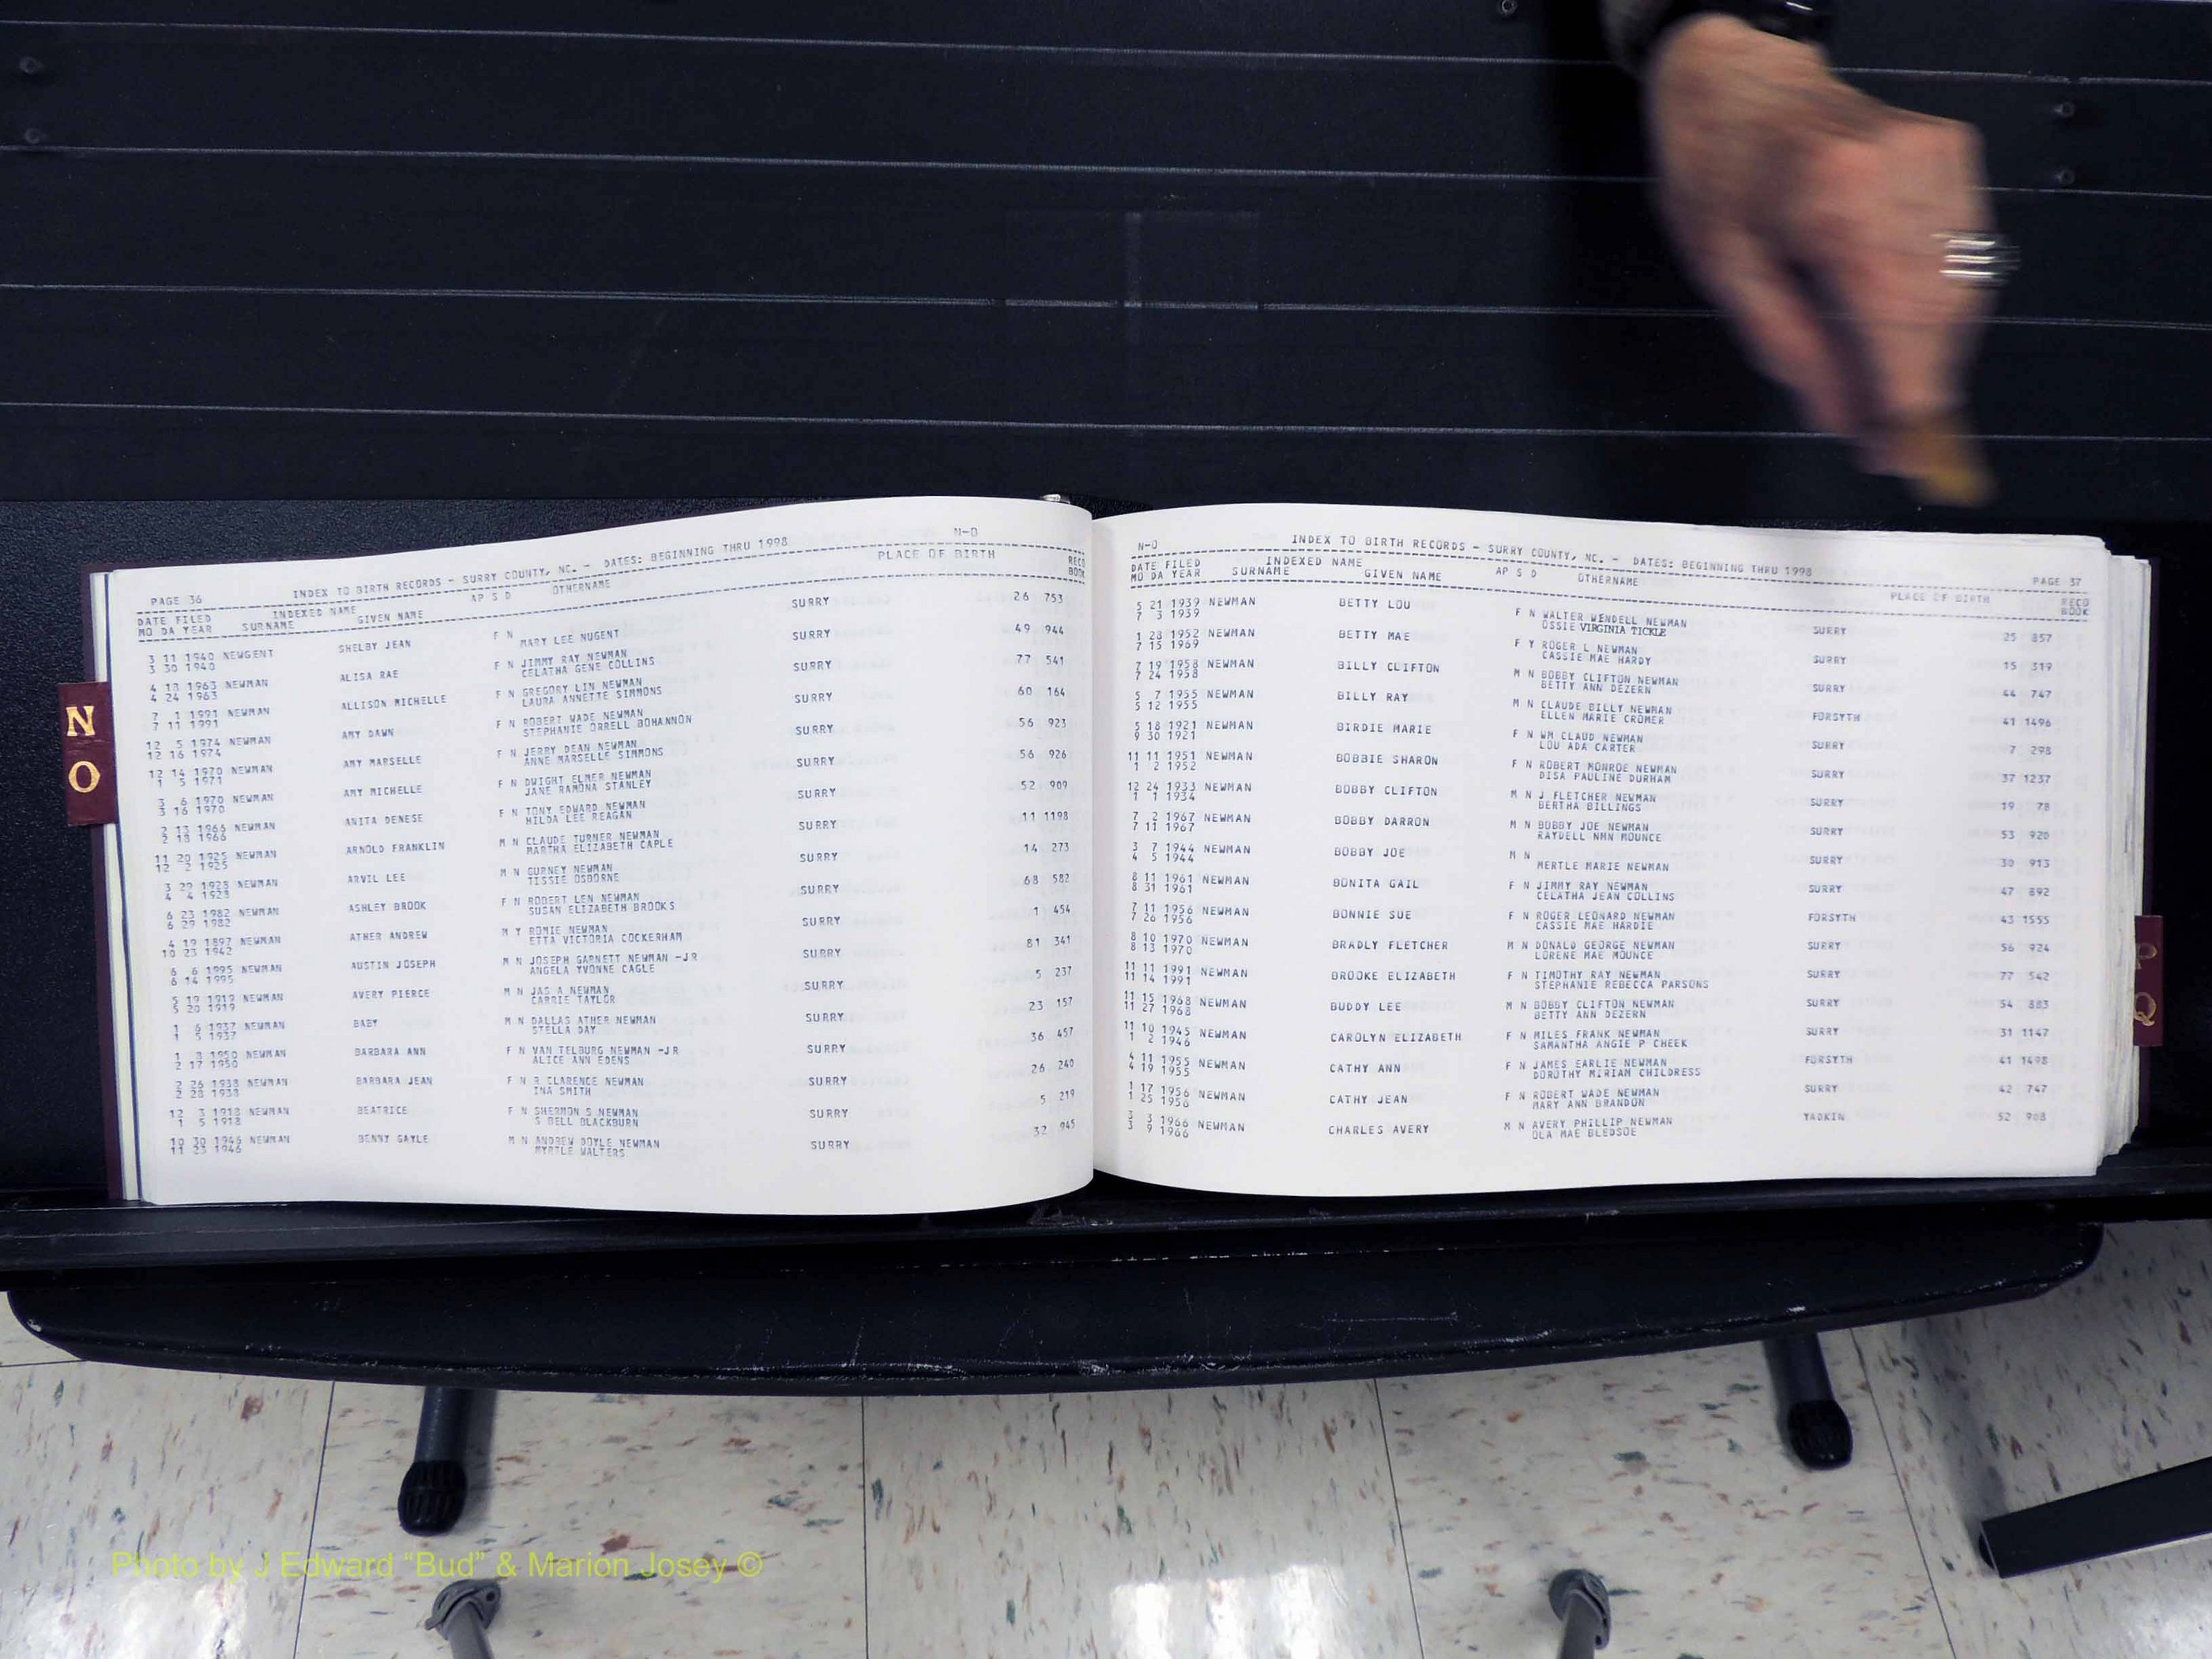 N
O
PAGE 36 INDEX TO BIRTH RECORDS - SURRY COUNTY, NC. - DATES: BEGINNING THRU 1998 N-O
DATE FILED INDEXED NAME AP S D OTHERNAME PLACE OF BIRTH RECO
MO DA YEAR SURNAME GIVEN NAME BOOK
3 11 1940 NEWGENT SHELBY JEAN F N SURRY 26 753
3 30 1940 MARY LEE NUGENT
4 18 1963 NEWMAN ALISA RAE F N JIMMY RAY NEWMAN SURRY 49 944
4 24 1963 CELATHA GENE COLLINS
7 1 1991 NEWMAN ALLISON MICHELLE F N GREGORY LIN NEWMAN SURRY 77 541
7 11 1991 LAURA ANNETTE SIMMONS
12 5 1974 NEWMAN AMY DAWN F N ROBERT WADE NEWMAN SURRY 60 164
12 16 1974 STEPHANIE ORRELL BOHANNON
12 14 1970 NEWMAN AMY MARSELLE F N JERRY DEAN NEWMAN SURRY 56 923
1 5 1971 ANNE MARSELLE SIMMONS
3 6 1970 NEWMAN AMY MICHELLE F N DWIGHT ELMER NEWMAN SURRY 56 926
3 16 1970 JANE RAMONA STANLEY
2 13 1966 NEWMAN ANITA DENESE F N TONY EDWARD NEWMAN SURRY 52 909
2 18 1966 HILDA LEE REAGAN
11 20 1925 NEWMAN ARNOLD FRANKLIN M N CLAUDE TURNER NEWMAN SURRY 11 1198
12 2 1925 MARTHA ELIZABETH CAPLE
3 29 1928 NEWMAN ARVIL LEE M N GURNEY NEWMAN SURRY 14 273
4 4 1928 TISSIE OSBORNE
6 23 1982 NEWMAN ASHLEY BROOK F N ROBERT LEN NEWMAN SURRY 68 582
6 29 1982 SUSAN ELIZABETH BROOKS
4 19 1897 NEWMAN ATHER ANDREW M Y ROMIE NEWMAN SURRY 1 454
10 23 1942 ETTA VICTORIA COCKERHAM
6 6 1995 NEWMAN AUSTIN JOSEPH M N JOSEPH GARNETT NEWMAN -JR SURRY 81 341
6 14 1995 ANGELA YVONNE CAGLE
5 19 1919 NEWMAN AVERY PIERCE M N JAS A NEWMAN SURRY 5 237
5 20 1919 CARRIE TAYLOR
1 6 1937 NEWMAN BABY M N DALLAS ATHER NEWMAN SURRY 23 157
1 5 1937 STELLA DAY
1 8 1950 NEWMAN BARBARA ANN F N VAN TELBURG NEWMAN -JR SURRY 36 457
2 17 1950 ALICE ANN EDENS
2 26 1938 NEWMAN BARBARA JEAN F N R CLARENCE NEWMAN SURRY 26 240
2 28 1938 INA SMITH
12 3 1918 NEWMAN BEATRICE F N SHERMON S NEWMAN SURRY 5 219
1 5 1918 S BELL BLACKBURN
10 30 1946 NEWMAN BENNY GAYLE M N ANDREW DOYLE NEWMAN SURRY 32 945
11 23 1946 MYRTLE WALTERS
N-O INDEX TO BIRTH RECORDS - SURRY COUNTY, NC. - DATES: BEGINNING THRU 1998 PAGE 37
DATE FILED INDEXED NAME AP S D OTHERNAME PLACE OF BIRTH RECO
MO DA YEAR SURNAME GIVEN NAME BOOK
5 21 1939 NEWMAN BETTY LOU F N WALTER WENDELL NEWMAN SURRY 25 857
7 3 1939 OSSIE VIRGINIA TICKLE
1 28 1952 NEWMAN BETTY MAE F Y ROGER L NEWMAN SURRY 15 319
7 15 1969 CASSIE MAE HARDY
7 19 1958 NEWMAN BILLY CLIFTON M N BOBBY CLIFTON NEWMAN SURRY 44 747
7 24 1958 BETTY ANN DEZERN
5 7 1955 NEWMAN BILLY RAY M N CLAUDE BILLY NEWMAN FORSYTH 41 1496
5 12 1955 ELLEN MARIE CROMER
5 18 1921 NEWMAN BIRDIE MARIE F N WM CLAUD NEWMAN SURRY 7 298
9 30 1921 LOU ADA CARTER
11 11 1951 NEWMAN BOBBIE SHARON F N ROBERT MONROE NEWMAN SURRY 37 1237
1 2 1952 DISA PAULINE DURHAM
12 24 1933 NEWMAN BOBBY CLIFTON M N J FLETCHER NEWMAN SURRY 19 78
1 1 1934 BERTHA BILLINGS
7 2 1967 NEWMAN BOBBY DARRON M N BOBBY JOE NEWMAN SURRY 53 920
7 11 1967 RAYDELL NMN MOUNCE
3 7 1944 NEWMAN BOBBY JOE M N SURRY 30 913
4 5 1944 MERTLE MARIE NEWMAN
8 11 1961 NEWMAN BONITA GAIL F N JIMMY RAY NEWMAN SURRY 47 892
8 31 1961 CELATHA JEAN COLLINS
7 11 1956 NEWMAN BONNIE SUE F N ROGER LEONARD NEWMAN FORSYTH 43 1555
7 26 1956 CASSIE MAE HARDIE
8 10 1970 NEWMAN BRADLY FLETCHER M N DONALD GEORGE NEWMAN SURRY 56 924
8 13 1970 LORENE MAE MOUNCE
11 11 1991 NEWMAN BROOKE ELIZABETH F N TIMOTHY RAY NEWMAN SURRY 77 542
11 14 1991 STEPHANIE REBECCA PARSONS
11 15 1968 NEWMAN BUDDY LEE M N BOBBY CLIFTON NEWMAN SURRY 54 883
11 27 1968 BETTY ANN DEZERN
11 10 1945 NEWMAN CAROLYN ELIZABETH F N MILES FRANK NEWMAN SURRY 31 1147
1 2 1946 SAMANTHA ANGIE P CHEEK
4 11 1955 NEWMAN CATHY ANN F N JAMES EARLIE NEWMAN FORSYTH 41 1498
4 19 1955 DOROTHY MIRIAM CHILDRESS
1 17 1956 NEWMAN CATHY JEAN F N ROBERT WADE NEWMAN SURRY 42 747
1 25 1956 MARY ANN BRANDON
3 3 1966 NEWMAN CHARLES AVERY M N AVERY PHILLIP NEWMAN YADKIN 52 908
3 9 1966 OLA MAE BLEDSOE
Q
Photo by J Edward “Bud” & Marion Josey ©